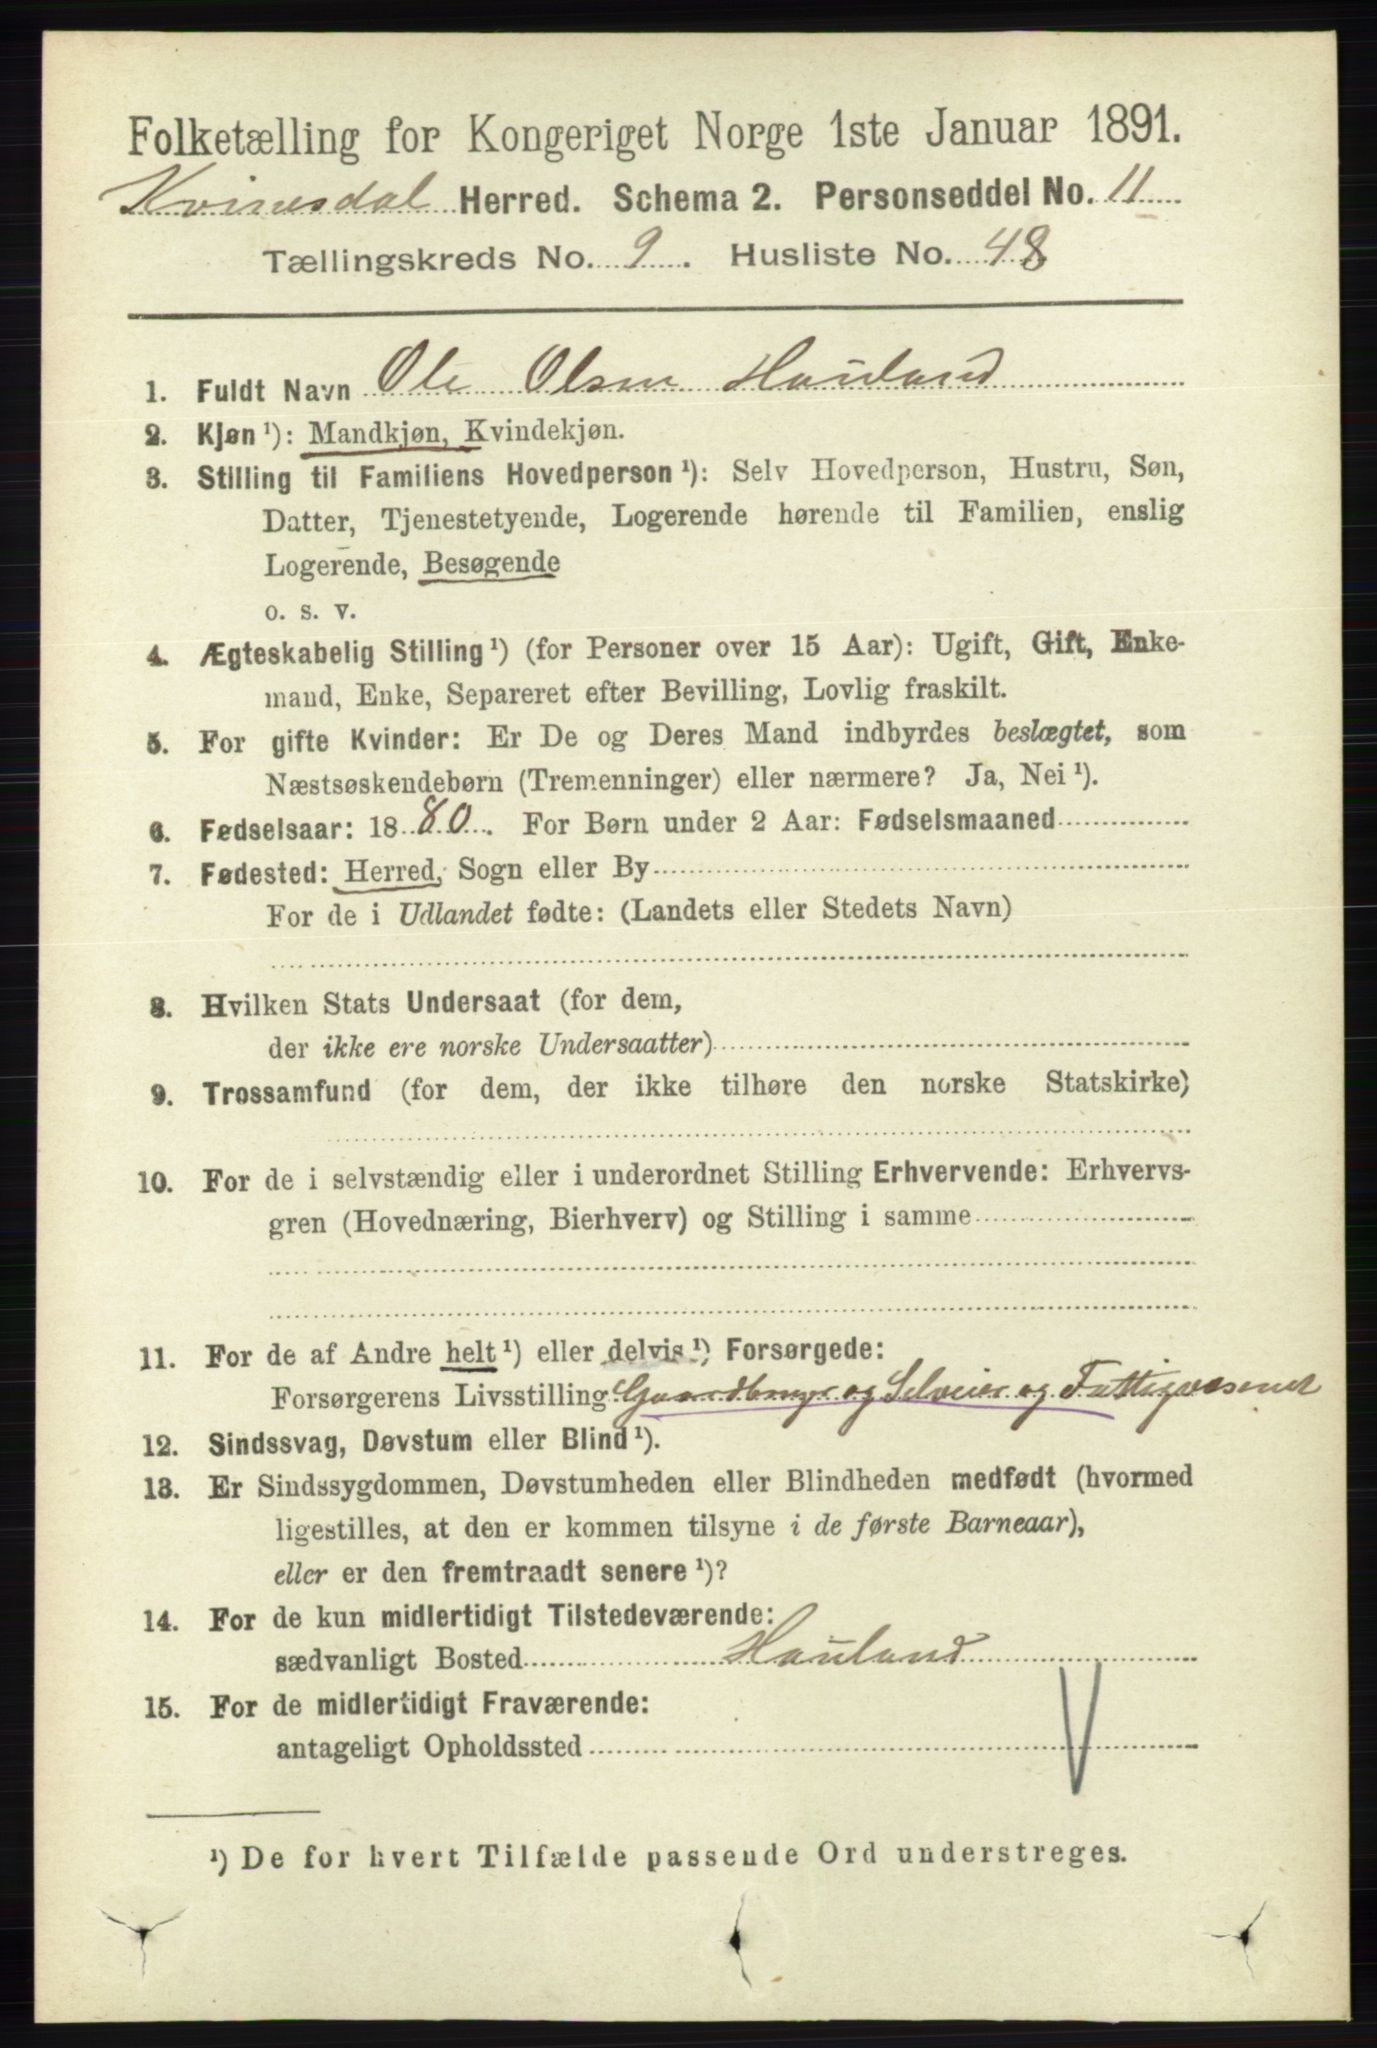 Folketælling for Kongeriget Norge 1ste Januar 1891.
Kvinesdal Herred. Schema 2. Personseddel No. 11
Tællingskreds No. 9. Husliste No. 48
1. Fuldt Navn Ole Olsen Houland
2. Kjøn ¹): Mandkjøn, Kvindekjøn.
3. Stilling til Familiens Hovedperson ¹): Selv Hovedperson, Hustru, Søn,
Datter, Tjenestetyende, Logerende hørende til Familien, enslig
Logerende, Besøgende
o. s. v.
4. Ægteskabelig Stilling ¹) (for Personer over 15 Aar): Ugift, Gift, Enke-
mand, Enke, Separeret efter Bevilling, Lovlig fraskilt.
5. For gifte Kvinder: Er De og Deres Mand indbyrdes beslægtet, som
Næstsøskendebørn (Tremenninger) eller nærmere? Ja, Nei ¹).
6. Fødselsaar: 1880. For Børn under 2 Aar: Fødselsmaaned
7. Fødested: Herred, Sogn eller By
For de i Udlandet fødte: (Landets eller Stedets Navn)
8. Hvilken Stats Undersaat (for dem,
der ikke ere norske Undersaatter)
9. Trossamfund (for dem, der ikke tilhøre den norske Statskirke)
10. For de i selvstændig eller i underordnet Stilling Erhvervende: Erhvervs-
gren (Hovednæring, Bierhverv) og Stilling i samme
11. For de af Andre helt ¹) eller delvis ¹) Forsørgede:
Forsørgerens Livsstilling Gaardbruger og Selveier og Fattigvesenet
12. Sindssvag, Døvstum eller Blind ¹).
13. Er Sindssygdommen, Døvstumheden eller Blindheden medfødt (hvormed
ligestilles, at den er kommen tilsyne i de første Barneaar),
eller er den fremtraadt senere ¹)?
14. For de kun midlertidigt Tilstedeværende:
sædvanligt Bosted Houland
15. For de midlertidigt Fraværende:
antageligt Opholdssted
¹) De for hvert Tilfælde passende Ord understreges.